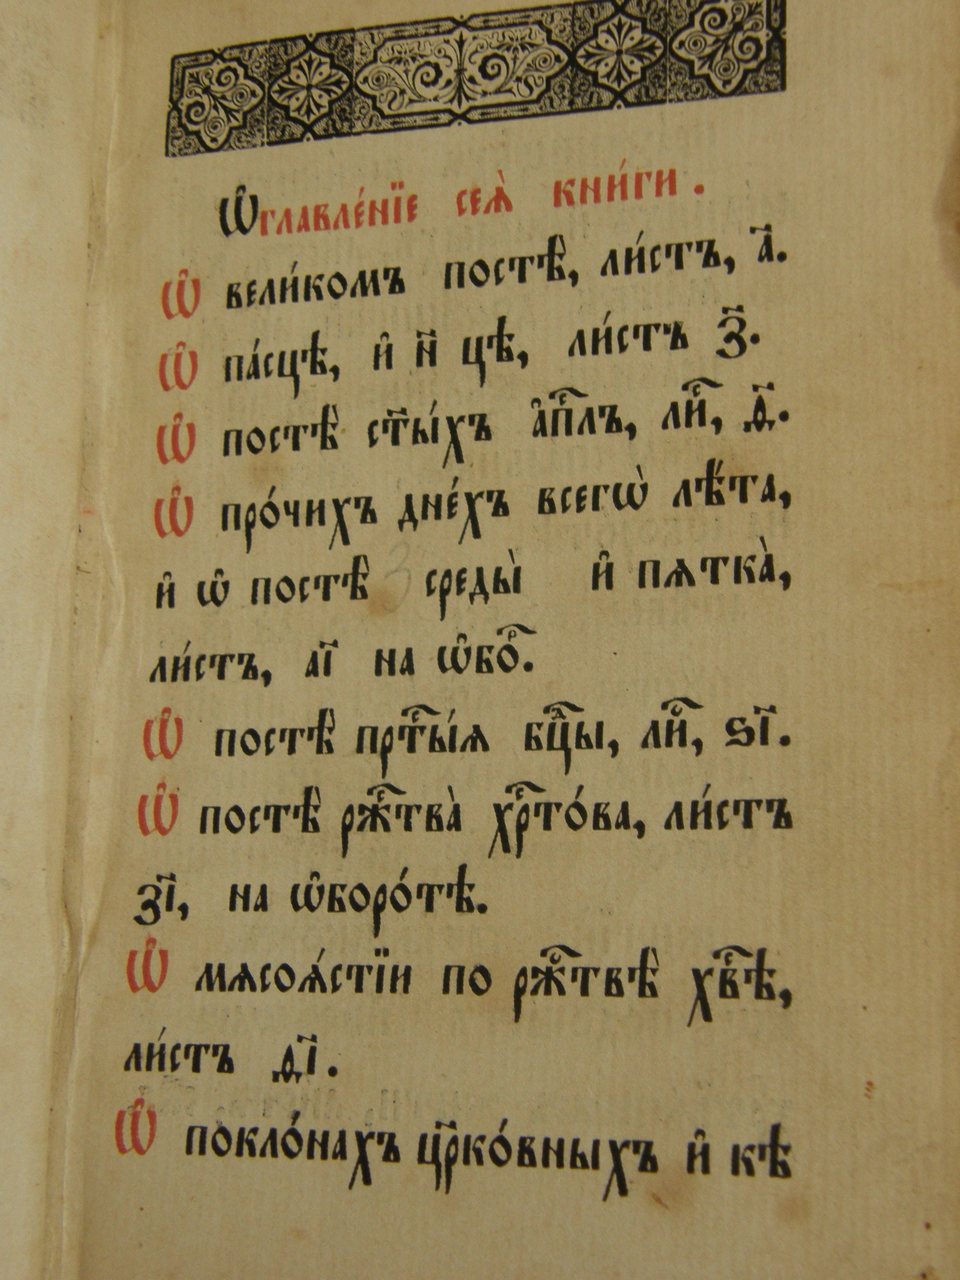 Ѡ҆главле́нїе сеѧ̀ кни́ги.
Ѡ҆ вели́комъ постѣ̀, ли́стъ, а҃.
Ѡ҆ па́сцѣ, и҆ н҃ цѣ, ли́стъ з҃.
Ѡ҆ постѣ̀ ст҃ы́хъ а҆пⷭ҇лъ, лиⷭ҇, д҃.
Ѡ҆ про́чихъ дне́хъ всегѡ̀ лѣ́та,
и҆ ѡ҆ постѣ̀ среды̀ и҆ пѧтка̀,
ли́стъ, а҃і на ѡ҆боⷬ҇.
Ѡ҆ постѣ̀ прⷭ҇ты́ѧ бцⷣы, лиⷭ҇, ѕ҃і.
Ѡ҆ постѣ̀ ржⷭ҇тва̀ хрⷭ҇то́ва, ли́стъ
з҃і, на ѡ҆боро́тѣ.
Ѡ҆ мѧсоѧ́стїи по ржⷭ҇твѣ̀ хвⷭ҇ѣ,
ли́стъ д҃і.
Ѡ҆ покло́нахъ цр҃ко́вныхъ и҆ кѣ